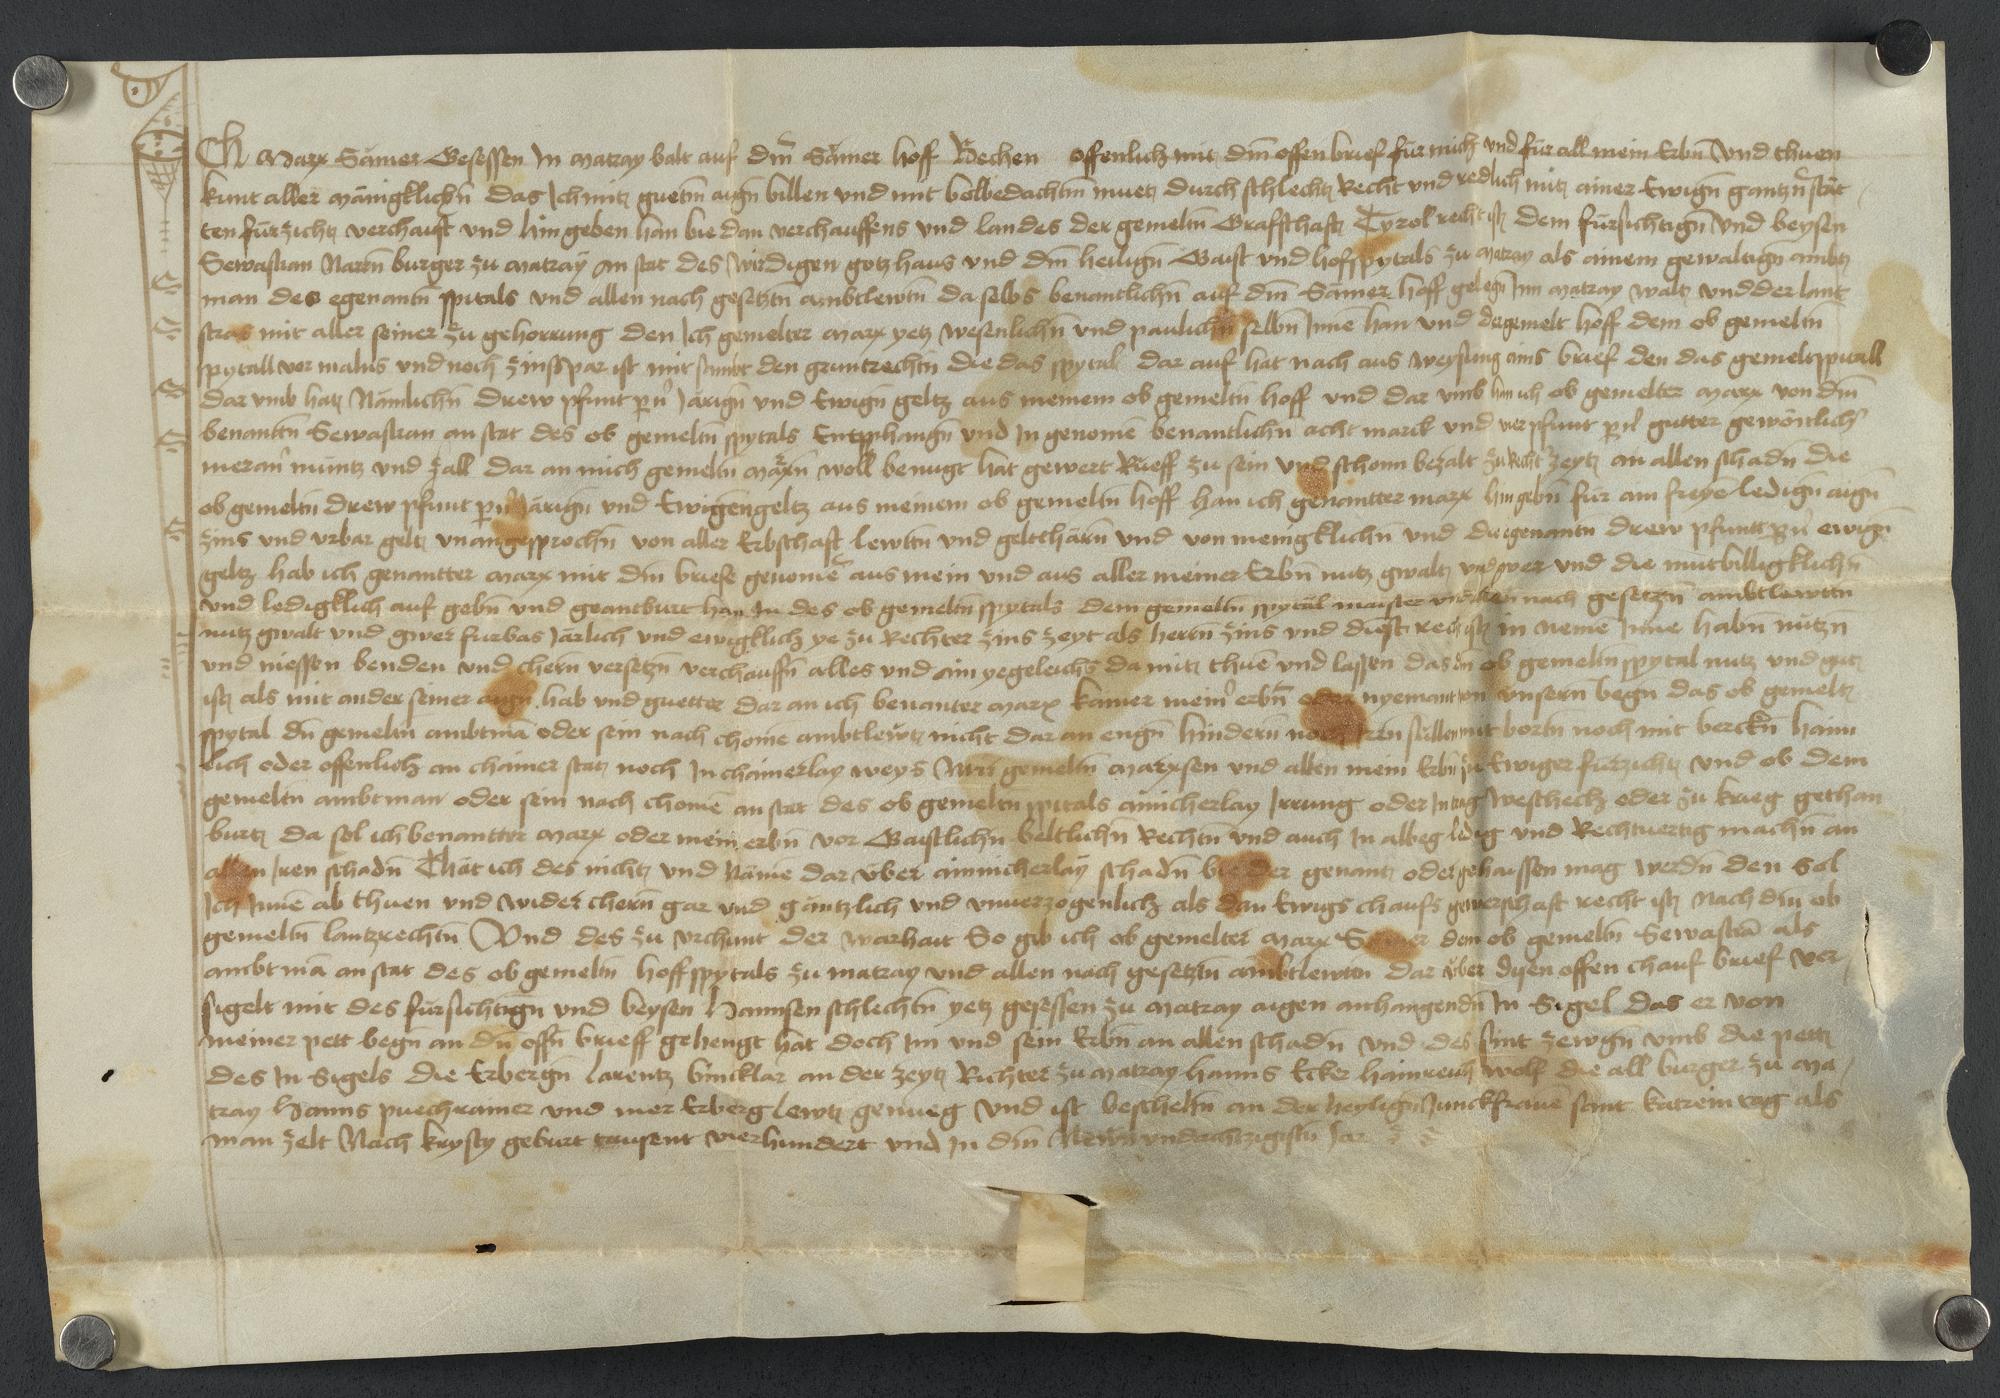 Ich Marx Sämer Gesessen In Matray balt auf dm̄ Sämer hoff Vechen offenlich mit dm̄ offen brief für mich und für all mein Erbn̄ Und thuen
kunt aller mänigklichn̄ das Ich mitz guetm̄ aign̄ billen und mit bolbedachtm̄ muetz durch schlechtz Recht und redlich mitz ainer Ewign̄ gantzn̄ stät
ten fürzichtz verchaüft und hin geben han bie dan verchauffens und landes der gemeltn̄ Graffschaftz Tyrol recht istz dem fürsichtign̄ Und beysen
Sewastian Narn̄ burger zu Matraÿ An stat des Wirdigen gotzhaus und dm̄ heilign̄ Gaist und hofspytals zu Matray als ainem gewaltign̄ ambtz
man des egenantn̄ spitals und allen nach gesetztn̄ ambtlewtn̄ da selbs benantlichn̄ auf dm̄ Sämer hoff gelegn̄ Inn Matray Waltz und der lant
stras mit aller seiner zu gehorrung den Ich gemelter Marx yetz wesenlichn̄ und paulichn̄ selbn̄ Inne han und der gemelt hoff dem ob gemeltn̄
spytall vor malns und noch zinsspar ist mit sambt den gruntrechtn̄ die das spytal dar auf hat nach aus weysung ains brief den das gemelt spitall
dar umb hatz Nämlichn̄ drew pfunt pn̄ Järign̄ und Ewign̄ geltz aus meinem ob gemeltn̄ hoff und dar umb han ich ob gemelter Marx von dm̄
benantn̄ Sewastian an stat des ob gemeltn̄ spytals Entpphangn̄ und In genomē benantlichn̄ acht marck und vier pfunt pn̄ gutter gewönlichr̄
meran̄ müntz und zall dar an mich gemeltn̄ Märxn̄ woll benugt hat gewert Rüeff zu sein und schonn bezalt zu Recht zeytz an allen schadn̄ die
ob gemeltn̄ drew pfunt pn̄ Järign̄ und Ewigen geltz aus meinem ob gemeltn̄ hoff han ich genantter marx hin gebn̄ für ain freyē ledign̄ aign̄
zins und urbar geltz unangesprochn̄ von aller Erbschaft lewttn̄ und geltthärn̄ und von meingklichn̄ und die genantn̄ drew pfuntt pn̄ ewign̄
geltz hab ich genantter Marx mit dm̄ briefe genomē aus mein und aus aller meiner Erbn̄ nutz gwaltz und gwer und die mutbilligklichn̄
und ledigklich auf gebn̄ und geantburt han In des ob gemeltn̄ spytals dem gemeltn̄ spytal maister und allen nach gesetzn̄ ambtlewttn̄
nutz gwalt und gwer furbas Järlich und ewigklich ye zu Rechter zins zeyt als herrn̄ zins und dinst recht istz in neme Inne habn̄ nutzn̄
und niessen benden und chern̄ versetzn̄ verchauffn̄ alles und ain yegeleichs da mitz thuē und lassen das dm̄ ob gemeltn̄ spytal nutz und gutz
istz als mit ander seiner aign̄ hab und guetter dar an ich benanter Marx kainer meinr̄ erbn̄ oder nyemant von unsern̄ begn̄ das ob gemeltz
spytal dn̄ gemeltn̄ ambtmā oder sein nach chome ambtlewtz nicht dar an engn̄ hindern̄ noch irrn̄ sullen mit bortn̄ noch mit berckn̄ haim
lich oder offenlich an chainer statz noch In chainerlay weys Mir gemeltn̄ Marxsen und allen mein Erbn̄ zu Ewiger fürzichtz und ob dem
gemeltn̄ ambtman oder sein nach chomē an stat des ob gemeltn̄ spitals ainicherlay Irrung oder Intrag Weschech oder zu krieg gethan
burtz da sol ich benantter Marx oder mein erbn̄ vor Gaistlichn̄ beltlichn̄ Rechtn̄ und auch In albeg ledig und Rechtvertig machn̄ an
allen Iren schadn̄ Thät ich des nichtz und Nämē dar über aininicherläy schadn̄ bie der genantz oder gehaissen mag werdn̄ den sol
Ich Innē ab thuen und wider chern̄ gar und gäntzlich und unverzogenlich als dan Ewigs chaufs gewerschaft recht istz Nach dm̄ ob
gemeltn̄ lantzrechtn̄ Und des zu urchunt der warhait So gib ich ob gemelter Marx Sämer dem ob gemeltn̄ Sewastiā als
ambtmā an stat des ob gemeltn̄ hoffspytals zu matray und allen nach gesetztn̄ ambtlewttn̄ dar über disen offen chauf brief ver
sigelt mit des fürsichtign̄ und beysen Hannsen schlechtn̄ yetz gesessen zu Matray aigen anhangendn̄ In Sigel das er von
meiner pett begn̄ an dn̄ offn̄ brieff gehengt hat doch Im und sein Erbn̄ an allen schadn̄ und des sint zewign̄ umb die pettz
des In Sigels die Erbergn̄ larentz bincklar an der zeytz Richter zu Matray hanns Ecker hainreich Wolf die all burger zu Ma
tray Hanns puechrainer und mer Erberg lewtz genueg Und ist beschehn̄ an der heylign̄ Junckfrauē sant katrein tag als
man zelt Nach kristy geburt tausent vierhundert und In dm̄ Newn und achtzigistn̄ Jar